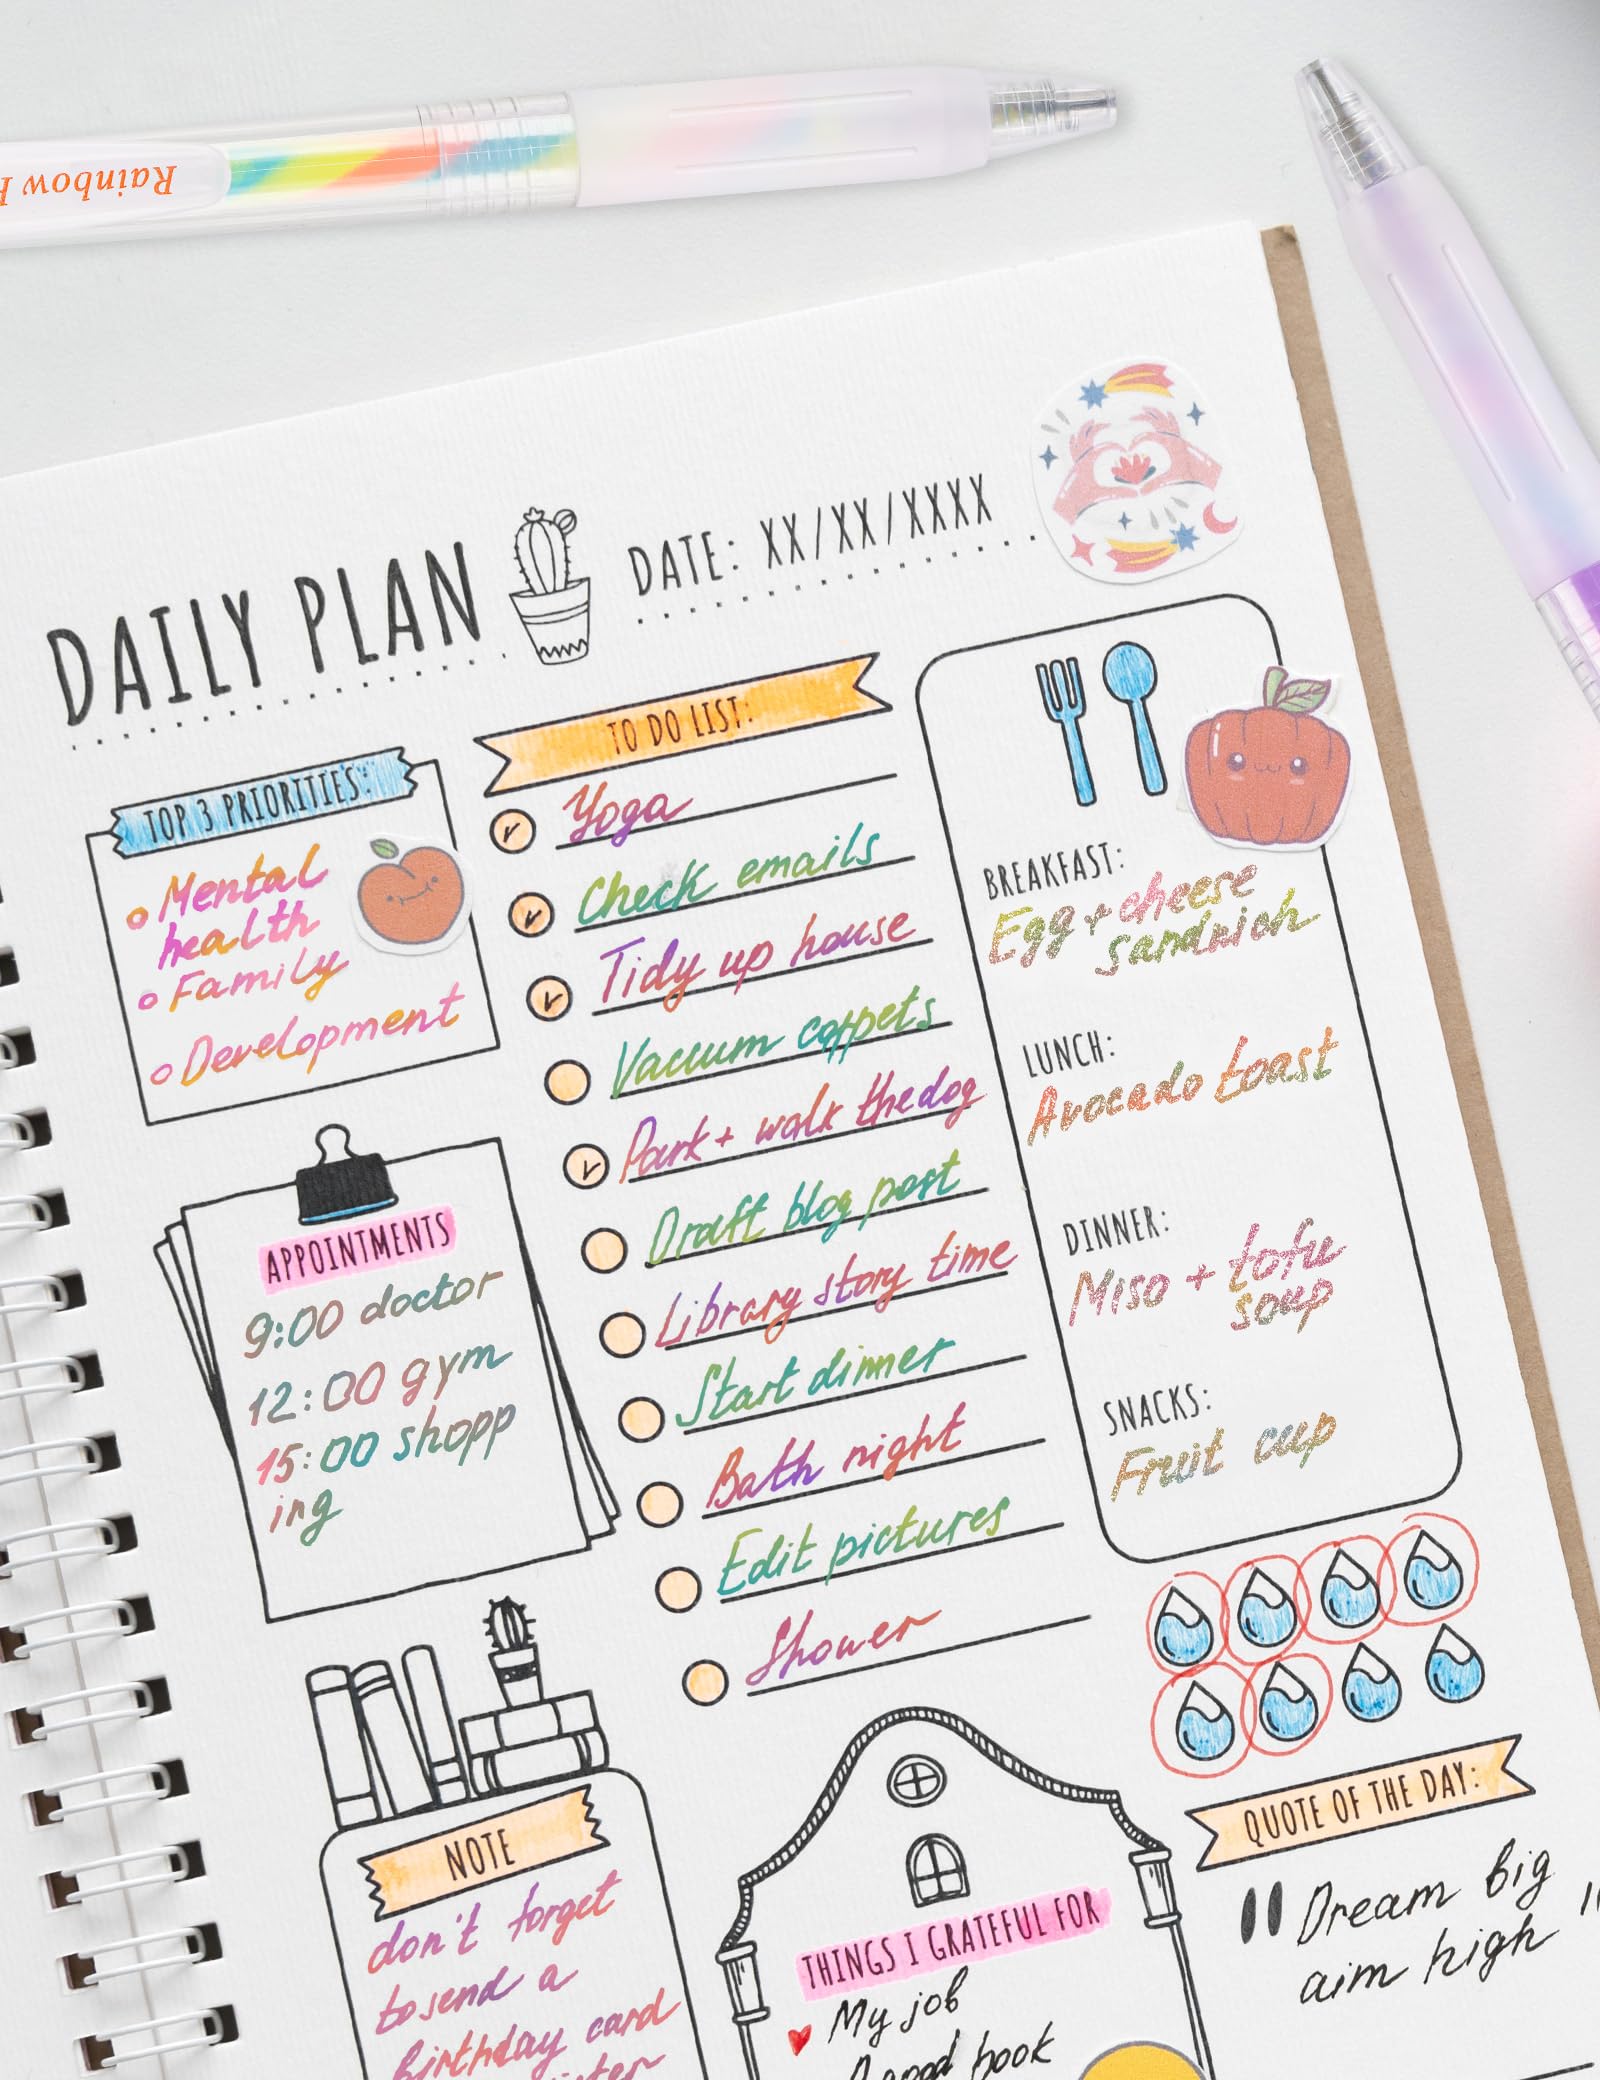 Rainbow
DAILY PLAN
DATE: XX/XX/XXXX
TOP 3 PRIORITIES:
Mental
health
Family
Development
APPOINTMENTS
9:00 doctor
12:00 gym
15:00 shopp
ing
TO DO LIST:
Yoga
Check emails
Tidy up house
Vacuum carpets
Park + walk the dog
Draft blog post
Library story time
Start dinner
Bath night
Edit pictures
Shower
BREAKFAST:
Egg + cheese
sandwich
LUNCH:
Avocado toast
DINNER:
Miso + tofu
soup
SNACKS:
Fruit cup
NOTE
don't forget
to send a
birthday card
THINGS I GRATEFUL FOR
My job
A good book
QUOTE OF THE DAY:
"Dream big
aim high"